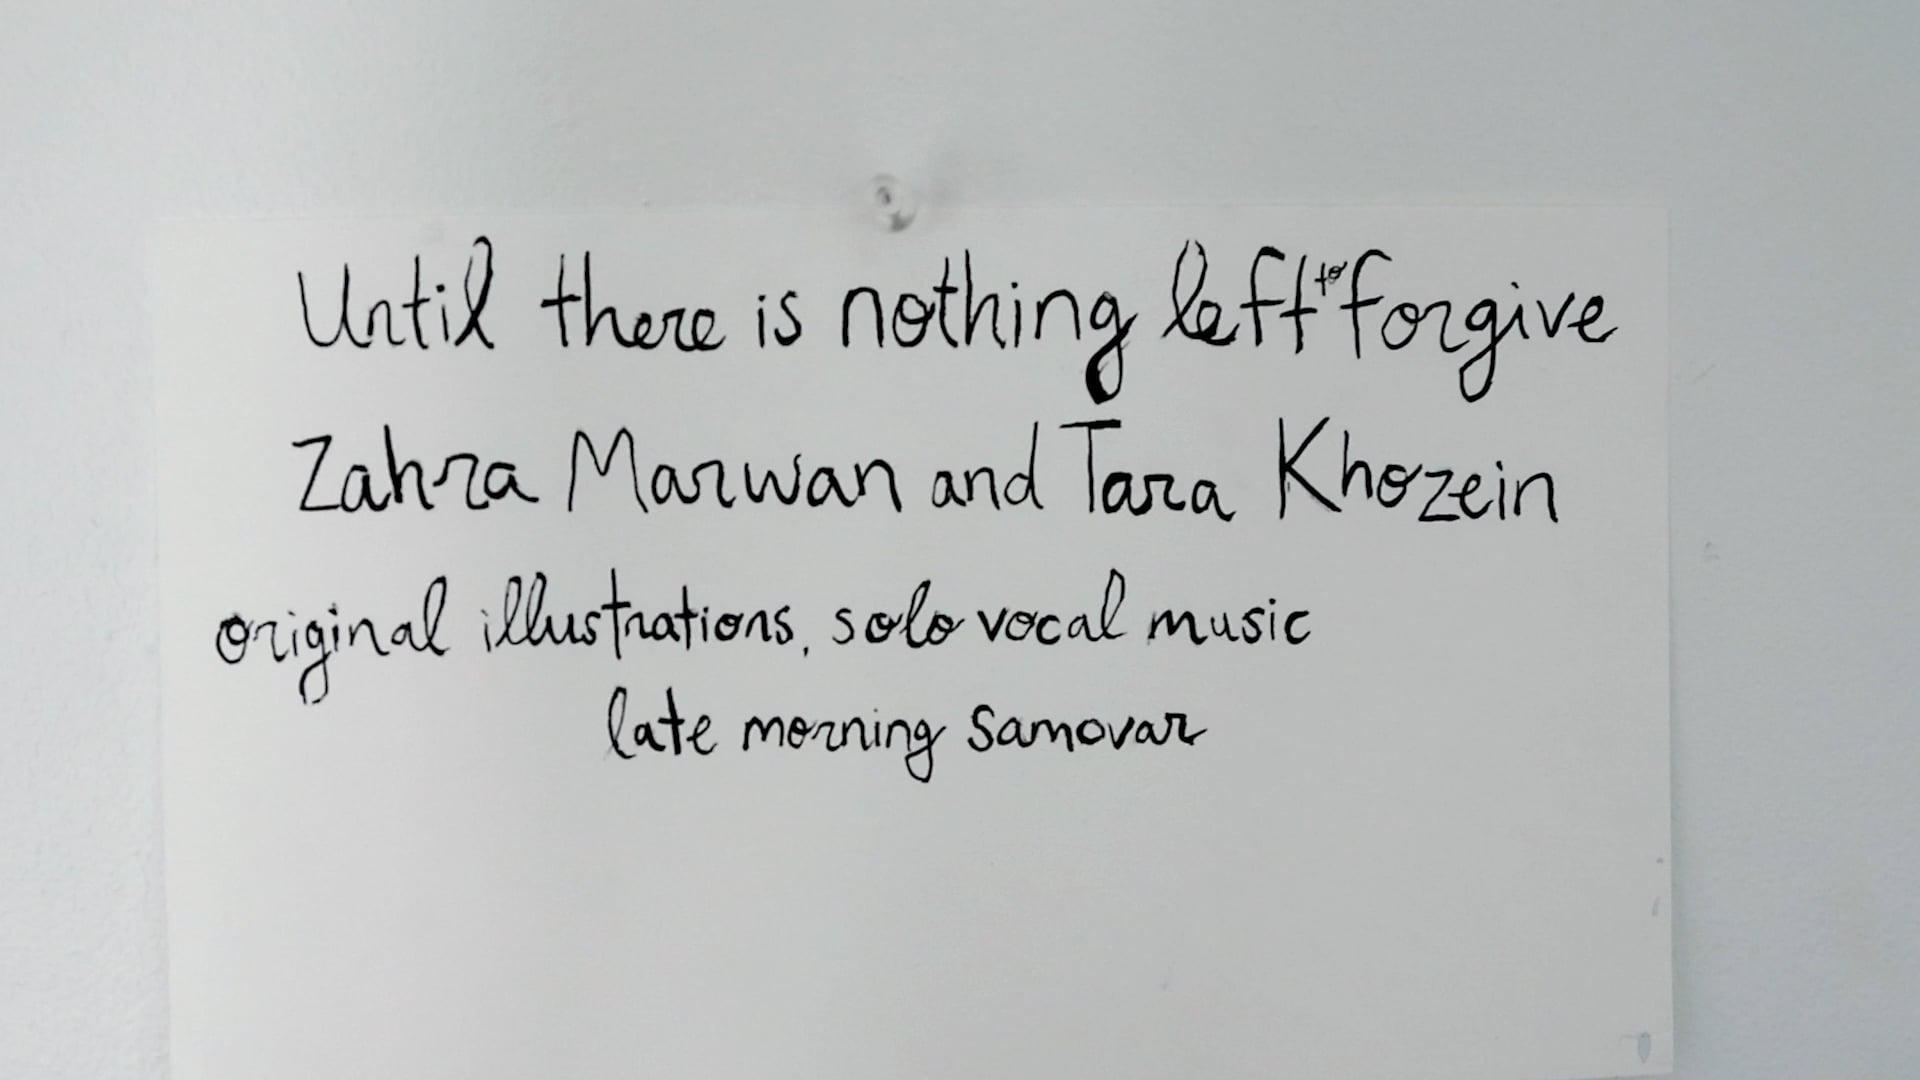 Until there is nothing left to forgive
Zahra Marwan and Tara Khozein
original illustrations, solo vocal music
late morning samovar